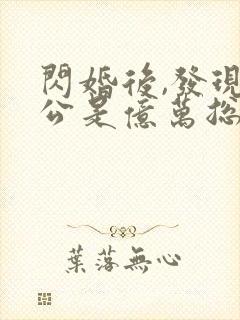 閃婚後,發現
公是億萬総
葉落無心